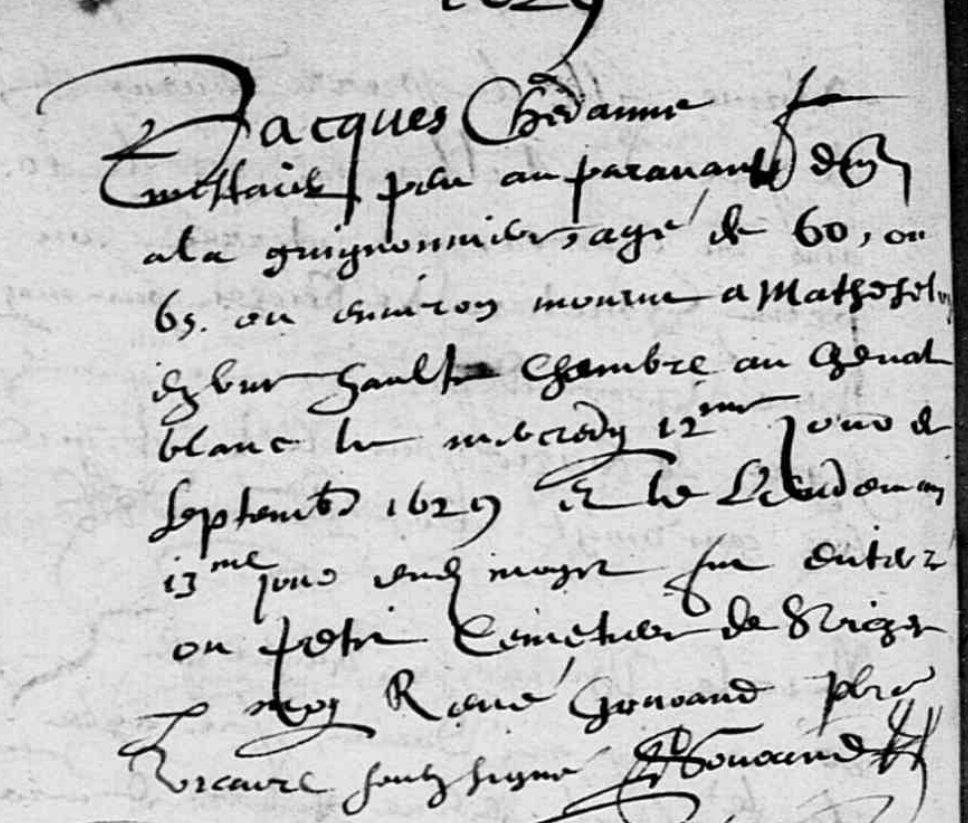 1629
Jacques Chedanne
mestaier peu au paravant dem
a la guignonniere, agé de 60, ou
65. ou environ mourut a Mathefelon
en une haulte chambre au cheval
blanc le mercredy 12me jour de
septembre 1629 et le Lendemain
13me jour dud moys fut enterré
ou petit Cemetiere de
p moy René Gouuand pbre
vicaire soubz signé